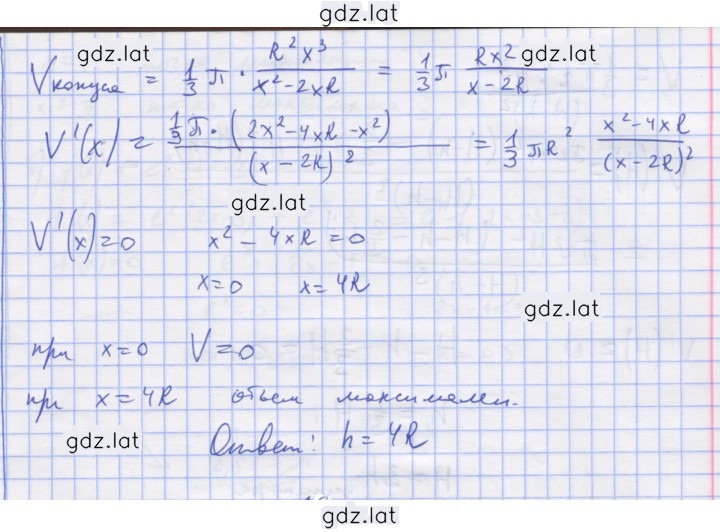 gdz.lat
gdz.lat gdz.lat
Vконуса = 1/3 π · R²x³/(x² - 2xR) = 1/3 π Rx²/(x - 2R)
V'(x) = 1/3 π · (2x² - 4xR - x²)/(x - 2R)² = 1/3 πR² (x² - 4xR)/(x - 2R)²
gdz.lat
V'(x) = 0 x² - 4xR = 0
x = 0 x = 4R
gdz.lat
при x = 0 V = 0
при x = 4R объем максимален.
gdz.lat Ответ: h = 4R
gdz.lat